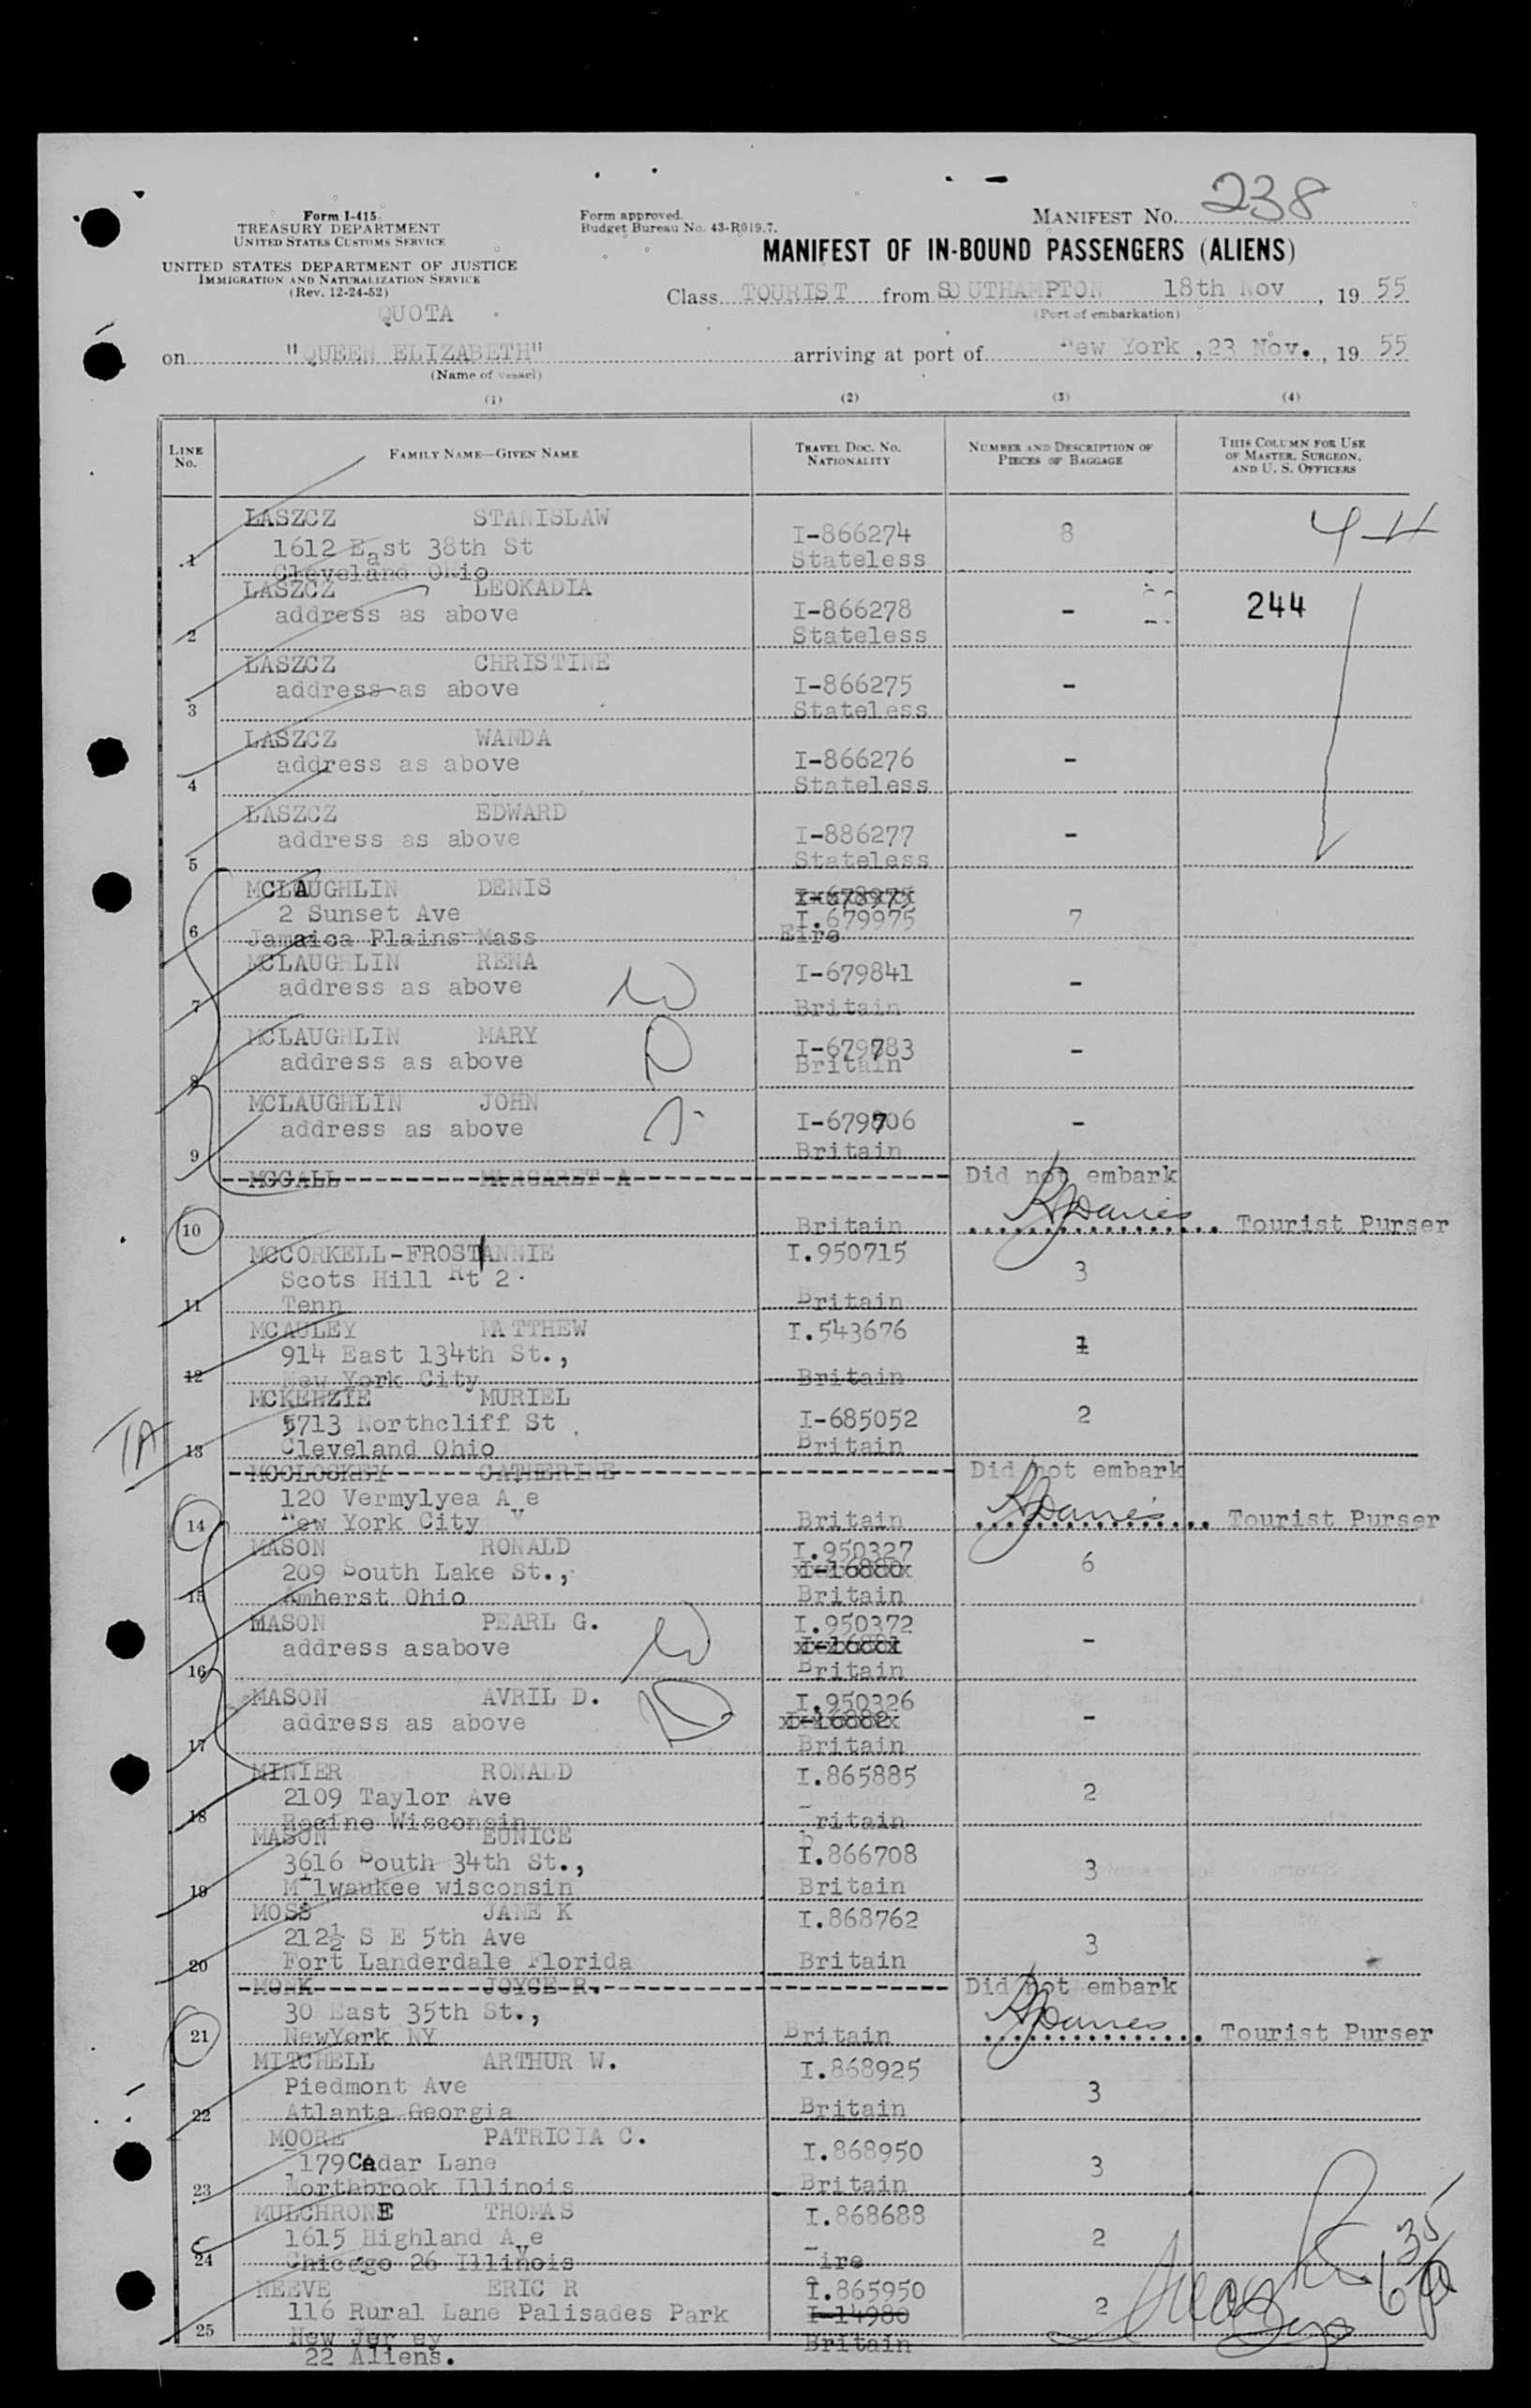 238
Form I-415
TREASURY DEPARTMENT
UNITED STATES CUSTOMS SERVICE
UNITED STATES DEPARTMENT OF JUSTICE
IMMIGRATION AND NATURALIZATION SERVICE
(Rev. 12-24-52)
QUOTA
Form approved.
Budget Bureau No. 43-R019.7.
MANIFEST NO.
MANIFEST OF IN-BOUND PASSENGERS (ALIENS)
Class TOURIST from SOUTHAMPTON 18th Nov , 19 55
(Port of embarkation)
on "QUEEN ELIZABETH" arriving at port of New York ,23 Nov. , 19 55
(Name of vessel)
(1) (2) (3) (4)
LINE No. FAMILY NAME—GIVEN NAME TRAVEL DOC. NO. NATIONALITY NUMBER AND DESCRIPTION OF PIECES OF BAGGAGE THIS COLUMN FOR USE OF MASTER, SURGEON, AND U. S. OFFICERS
LASZCZ STANISLAW
1 1612 East 38th St I-866274 8
Cleveland Ohio Stateless
LASZCZ LEOKADIA
address as above I-866278 - 244
2 Stateless
LASZCZ CHRISTINE
address as above I-866275 -
3 Stateless
LASZCZ WANDA
address as above I-866276 -
4 Stateless
LASZCZ EDWARD
address as above I-886277 -
5 Stateless
MCLAUGHLIN DENIS I-678975
6 2 Sunset Ave I.679975 7
Jamaica Plains Mass Eire
MCLAUGHLIN RENA I-679841
address as above -
7 Britain
MCLAUGHLIN MARY
address as above I-679783 -
8 Britain
MCLAUGHLIN JOHN
address as above I-679706 -
9 Britain
MCCALL MARGARET A Did not embark
10 Britain RJDavies Tourist Purser
MCCORKELL-FROST ANNIE I.950715
Scots Hill Rt 2. 3
11 Tenn Britain
MCAULEY MATTHEW I.543676
914 East 134th St., 1
12 New York City Britain
MCKENZIE MURIEL
5713 Northcliff St I-685052 2
TA 13 Cleveland Ohio Britain
MCCLOSKEY CATHERINE Did not embark
120 Vermylyea Ave
14 New York City Britain RJDavies Tourist Purser
MASON RONALD I.950327
209 South Lake St., I-16880 6
15 Amherst Ohio Britain
MASON PEARL G. I.950372
address asabove I-16881 -
16 Britain
MASON AVRIL D. I.950326
address as above I-16882 -
17 Britain
MINIER RONALD I.865885
2109 Taylor Ave 2
18 Racine Wisconsin Britain
MASON EUNICE
3616 South 34th St., I.866708 3
19 Milwaukee wisconsin Britain
MOSS JANE K I.868762
212½ S E 5th Ave 3
20 Fort Landerdale Florida Britain
MONK JOYCE R. Did not embark
30 East 35th St.,
21 NewYork NY Britain RJDavies Tourist Purser
MITCHELL ARTHUR W. I.868925
Piedmont Ave 3
22 Atlanta Georgia Britain
MOORE PATRICIA C. I.868950
179 Cedar Lane 3
23 Northbrook Illinois Britain
MULCHRONE THOMAS I.868688
1615 Highland Ave 2
24 Chicago 26 Illinois Eire
NEEVE ERIC R I.865950
116 Rural Lane Palisades Park I-14980 2
25 New Jersey Britain
22 Aliens.